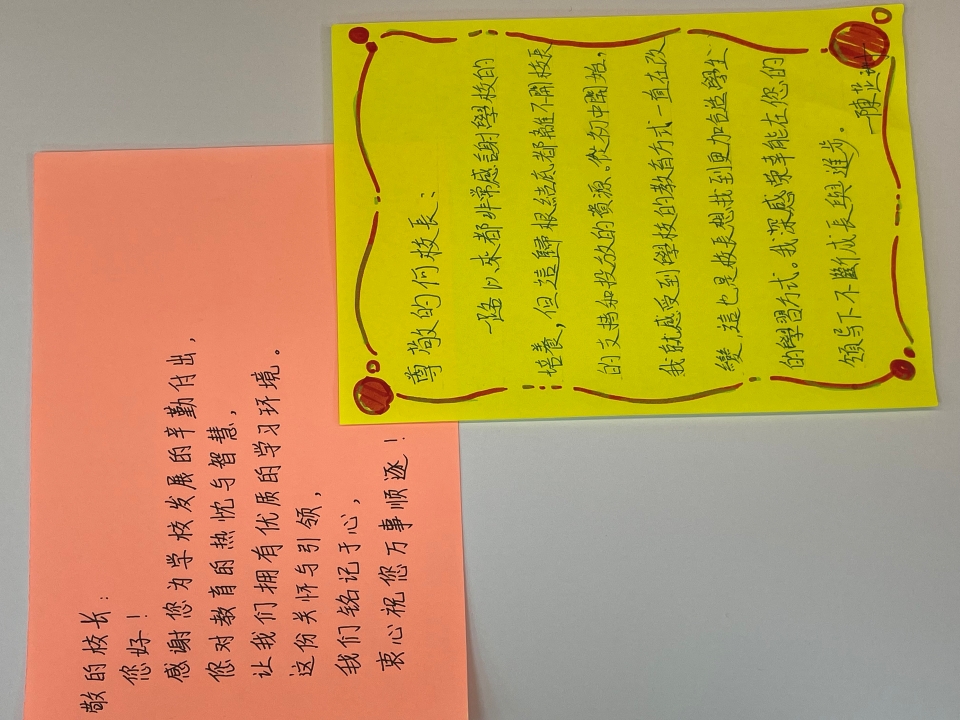 敬的校长：
您好！
感谢您为学校发展的辛勤付出，
您对教育的热忱与智慧，
让我们拥有优质的学习环境。
这份关怀与引领，
我们铭记于心，
衷心祝您万事顺遂！
尊敬的何校長：
一路以來都非常感謝學校的
培養，但這歸根結底都離不開校長
的支持和投放的資源。從初中開始，
我就感受到學校的教育方式一直在改
變，這也是校長想找到更加合适學生
的學習方式。我深感榮幸能在您的
領导下不斷成長與進步。
—陳芷